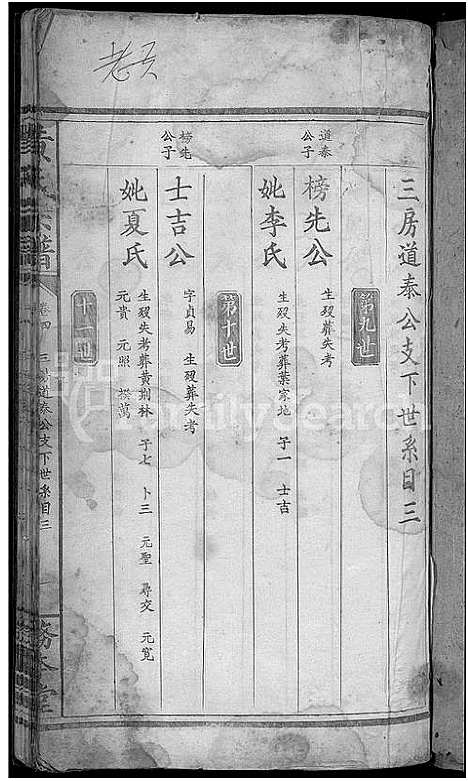 老又
三房道泰公支下世系目三
第九世
道泰公子
榜先公
生歿失考
妣李氏
生歿失考葬葉家地 子一 士吉
第十世
榜先公子
士吉公
字貞易 生歿葬失考
妣夏氏
生歿失考葬黄荆林 子七 卜三 元聖 尋交 元寬
元貴 元照 模萬
十一世
黄氏宗譜
卷四 三房道泰公支下世系目三
FamilySearch